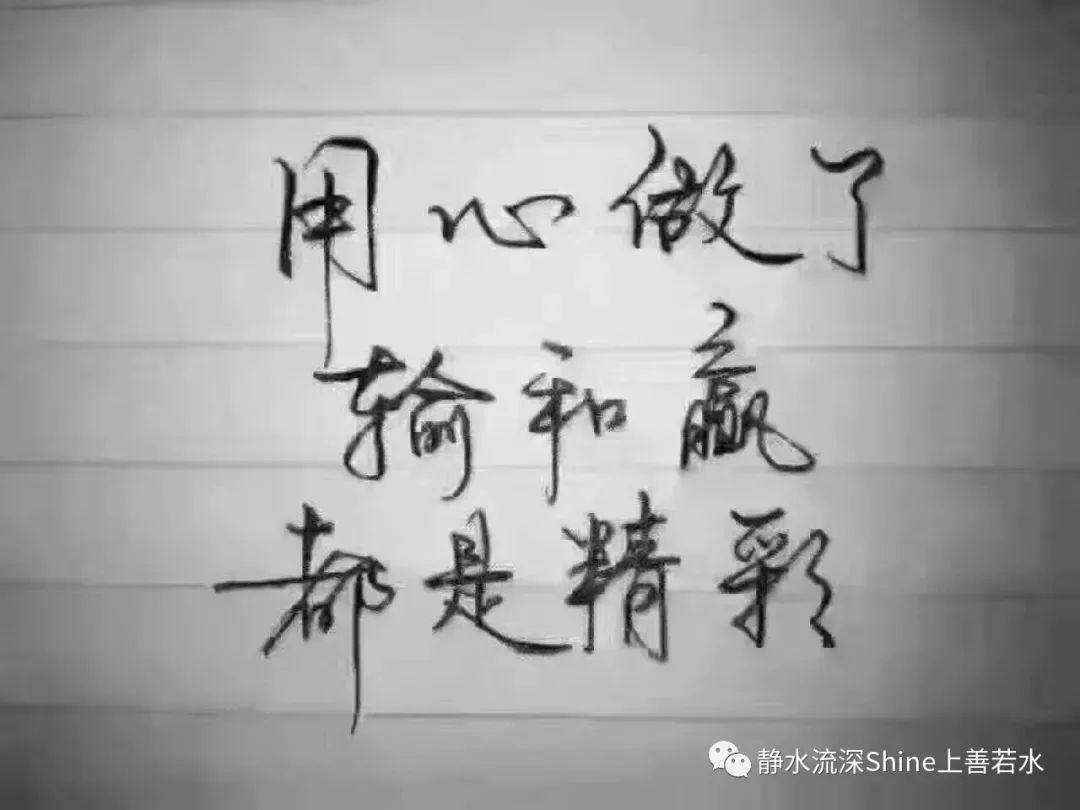 用心做了
输和赢
都是精彩
静水流深Shine上善若水